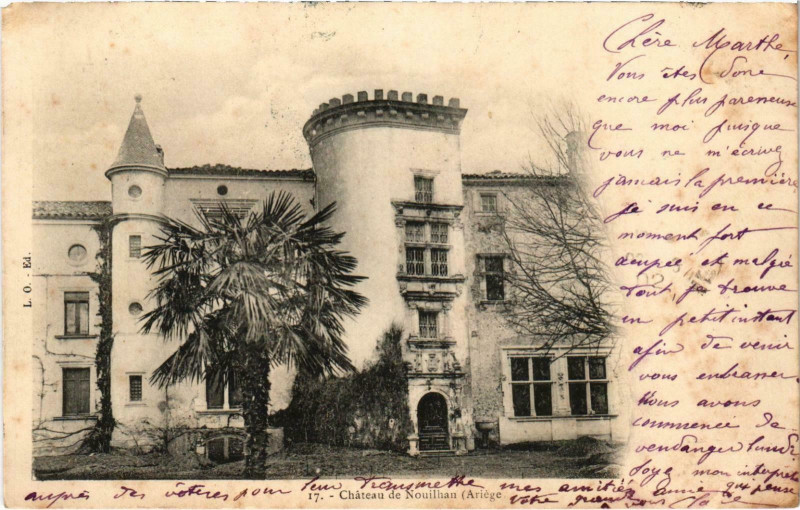 Chère Marthe,
Vous êtes donc
encore plus pareseuse
que moi puisque
vous ne m'écrivez
jamais la première
je suis en ce
moment fort
occupée et malgré
tout je trouve
un petit instant
afin de venir
vous embrasser.
Nous avons
commencé de
vendanger lundi
Soyez mon interprète
auprès des vôtres pour leur transmettre mes amitiés
Votre grande amie qui pense
à vous
17. - Château de Nouilhan (Ariège
L. O. - Ed.